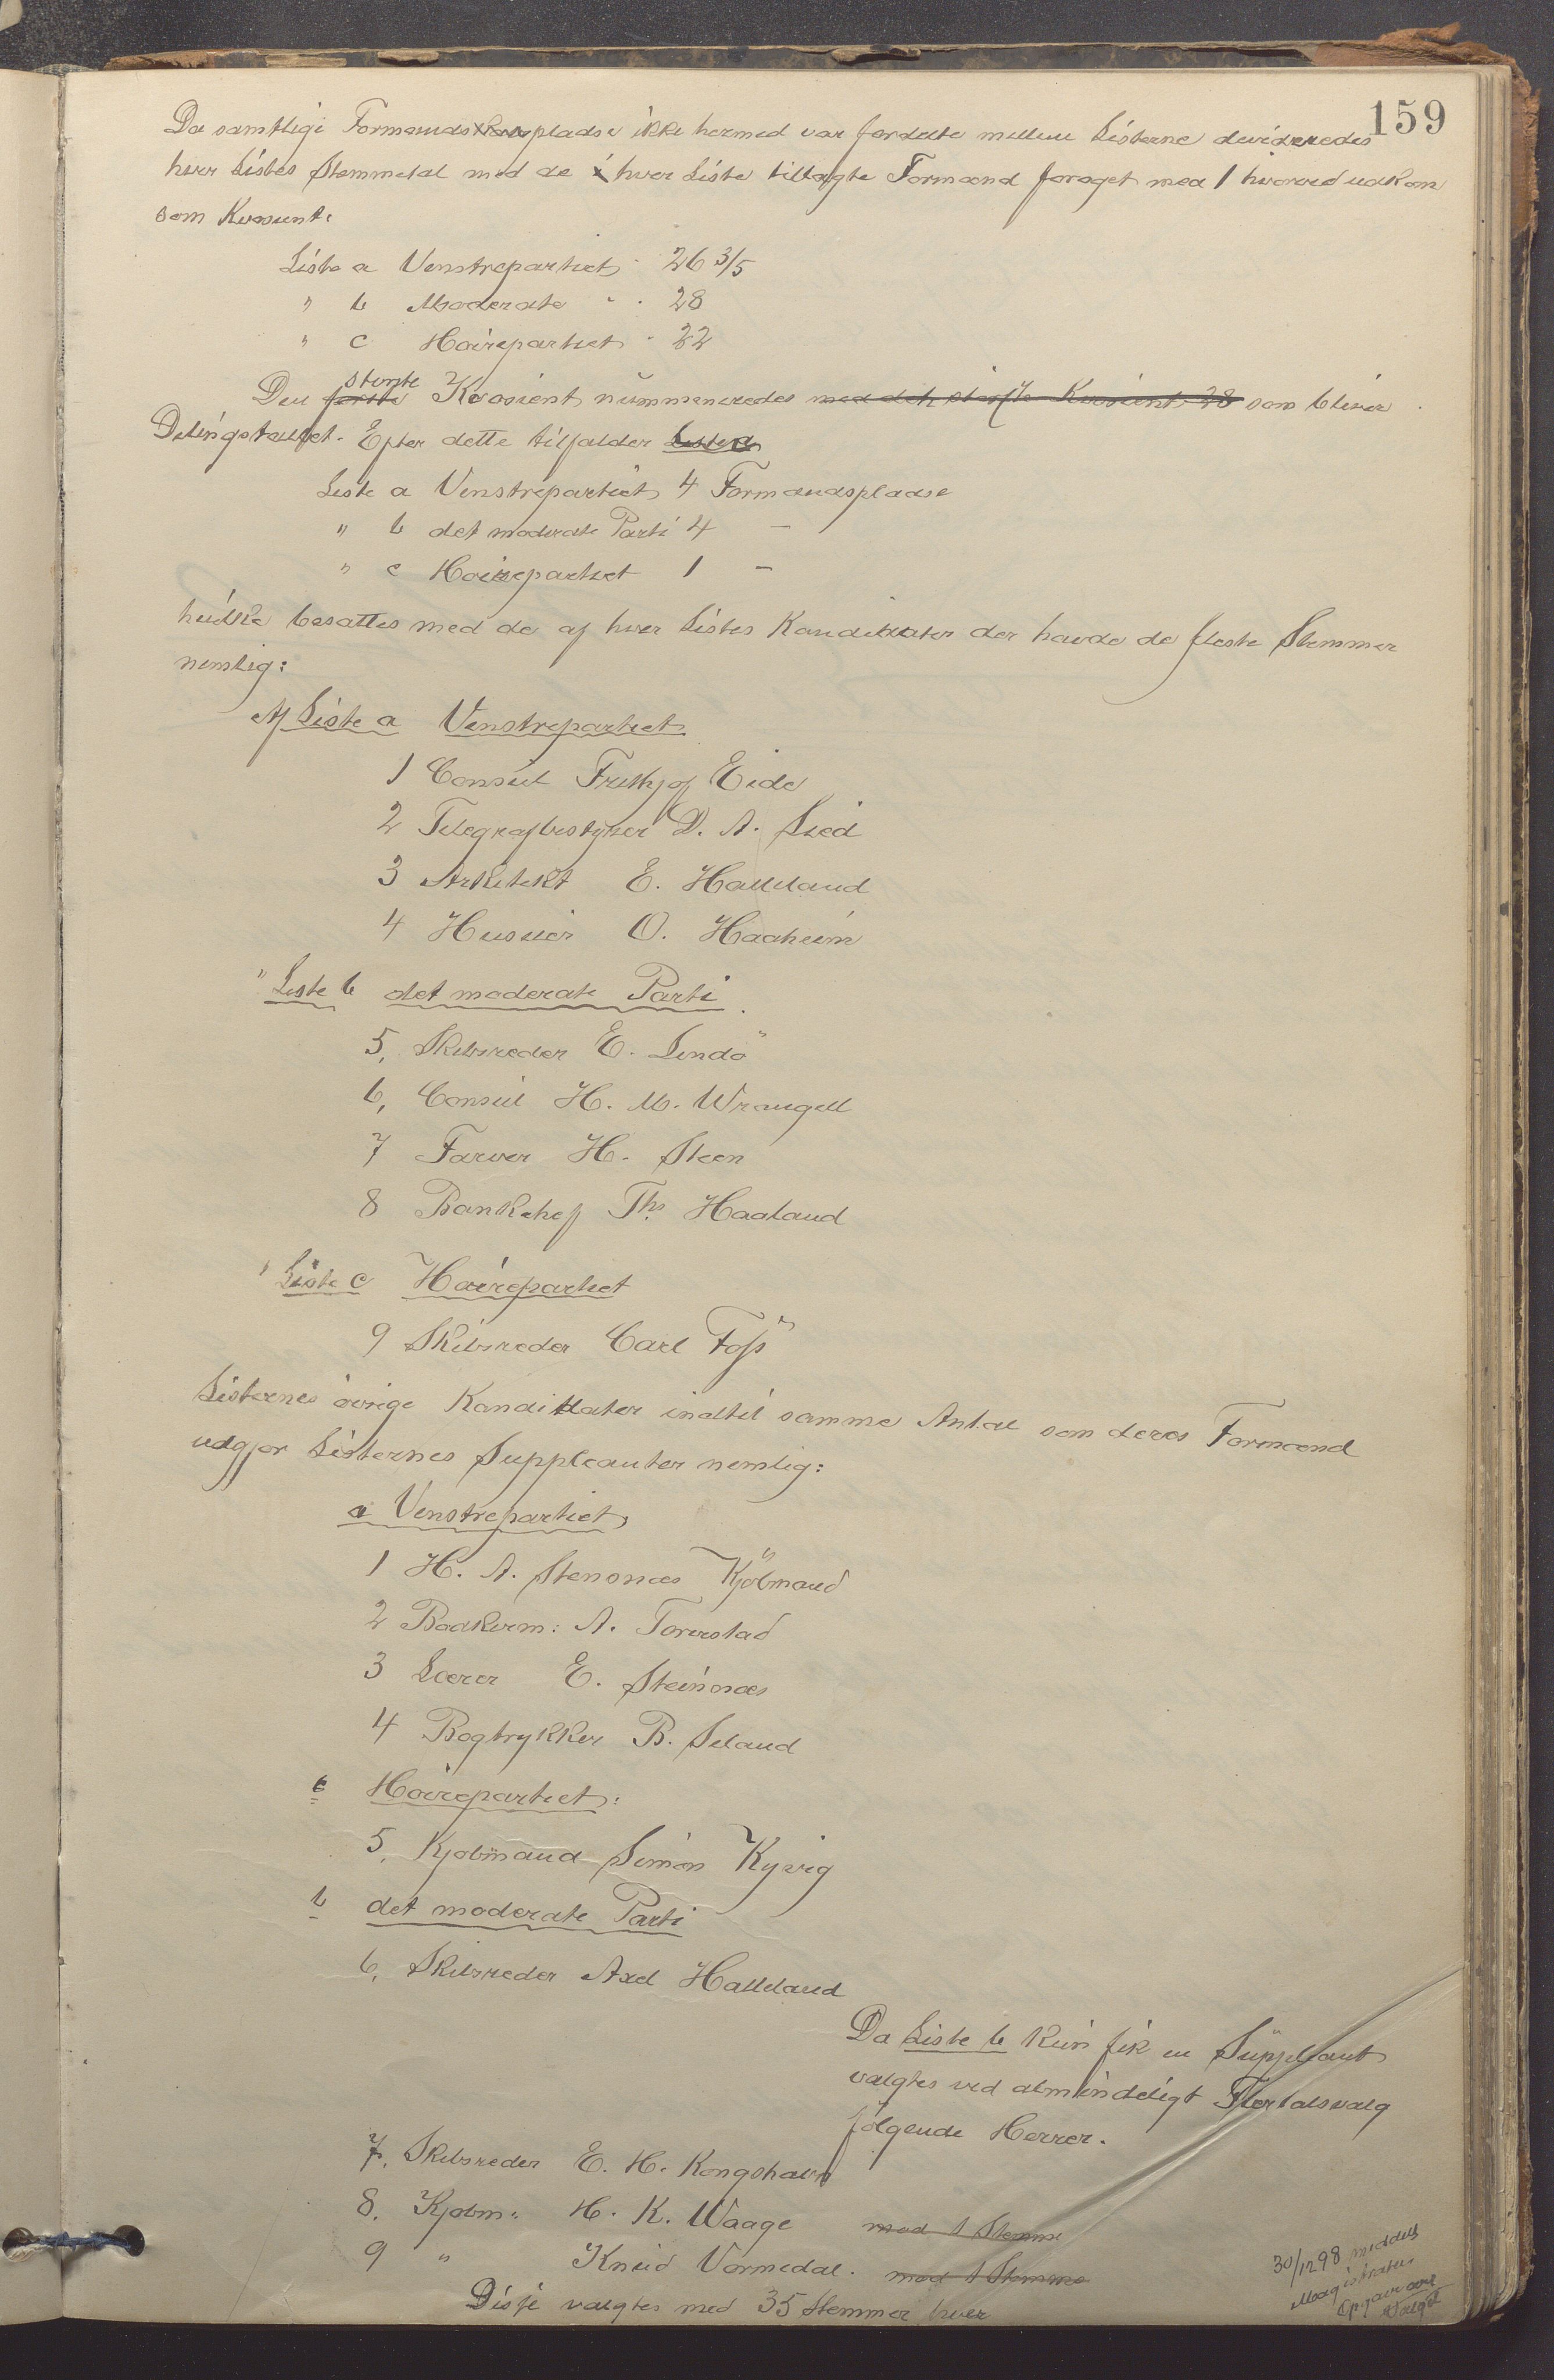 159
Da samtlige Formandspladse ikke hermed var fordelte mellem Listerne devideredes
hver Listes Stemmetal med de i hver Liste tillagte Formænd foröget med 1 hvorved udkom
som Kvosient:
Liste a Venstrepartiet. 26 3/5
" b Moderate " . 28
" c Höirepartiet . 22
Den förste störste Kvosient nummereredes med den störste Kvosient 28 som bliver
Delingstallet. Efter dette tilfalder Liste a
Liste a Venstrepartiet 4 Formandspladse
" b det moderate Parti 4 —
" c Höirepartiet 1 —
hvilke besattes med de af hver Listes Kandidater der havde de fleste Stemmer
nemlig:
Af Liste a Venstrepartiet
1 Consul Frithjof Eide
2 Telegrafbestyrer D. A. Lied
3 Arkitekt E. Halleland
4 Huseier O. Haaheim
" Liste b det moderate Parti.
5, Skibsreder E. Lindö
6, Consul H. M. Wrangell
7 Farver H. Steen
8 Bankchef Ths Haaland
" Liste c Höirepartiet
9 Skibsreder Carl Foss
Listernes övrige Kandidater indtil samme Antal som deres Formænd
udgjör Listernes Suppleanter nemlig:
a Venstrepartiet
1 H. A. Stensnæs Kjöbmand
2 Bödkerm: A. Torvestad
3 Lærer E. Steinsnæs
4 Bogtrykker B. Seland
c Höirepartiet:
5, Kjöbmand Simon Kyvig
b det moderate Parti
6, Skibsreder Axel Halleland
Da Liste b kun fik en Suppleant
valgtes ved almindeligt Flertalsvalg
fölgende Herrer.
7, Skibsreder E. H. Kongshavn
8, Kjöbm: H. K. Waage med 1 Stemme
9 " Knud Vormedal. med 1 Stemme
Disse valgtes med 35 Stemmer hver
30/12 98 meddelt
Magistraten
Opgave over
Valget